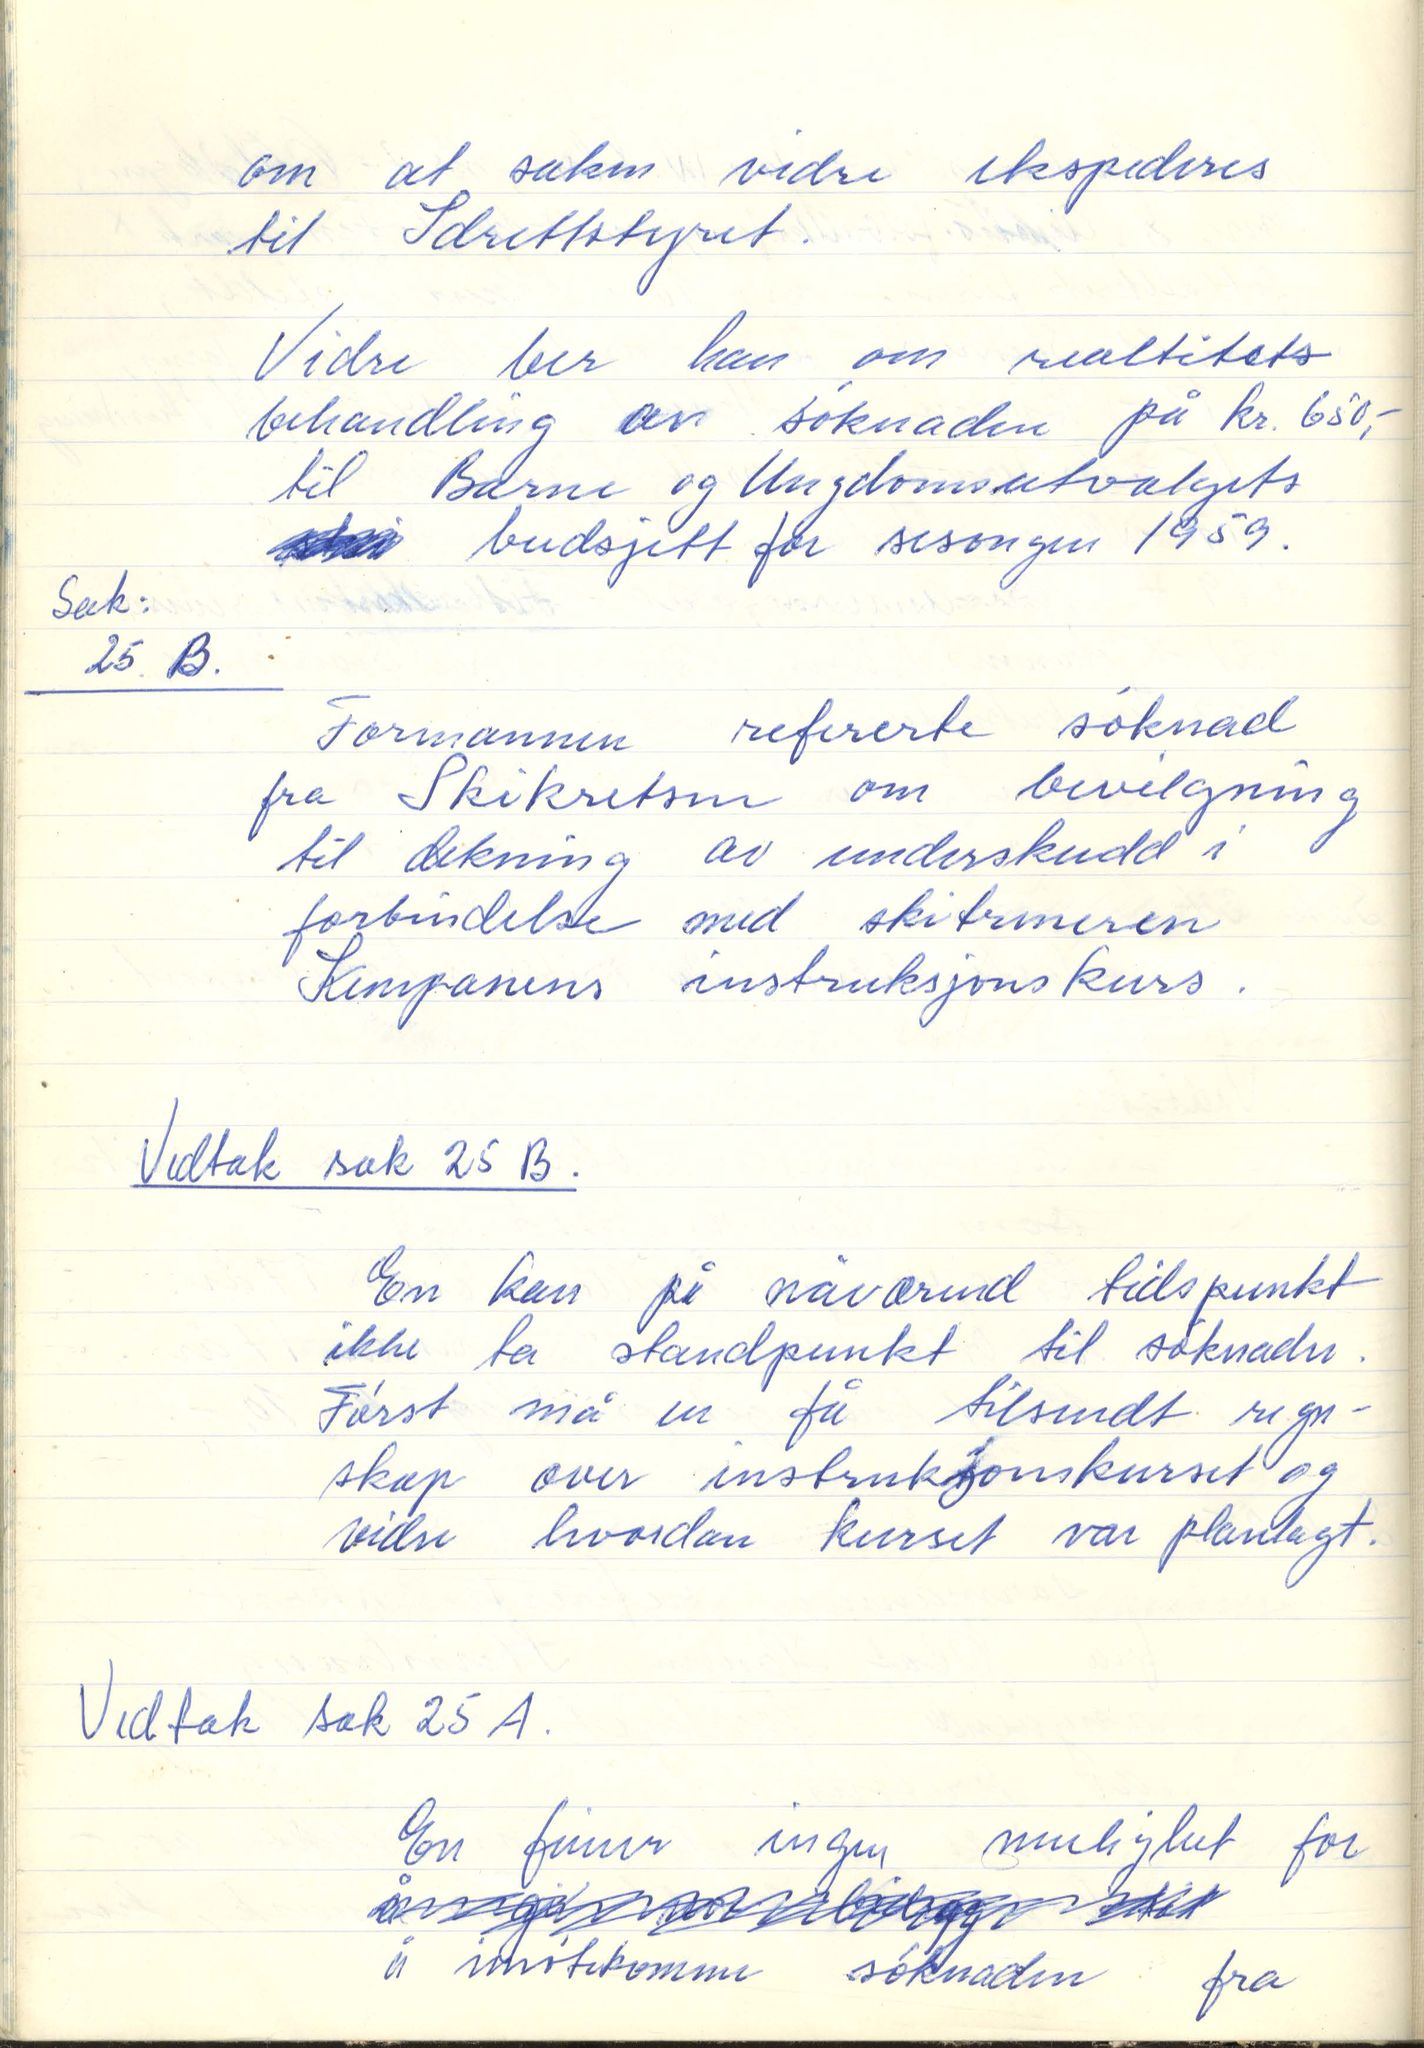 om at saken vidre ekspederes
til Idrettstyret.
Vidre ber han om realtitets
behandling av søknaden på kr. 650,-
til Barne og Ungdomsutvalgets
budsjett for sesongen 1959.
Sak:
25. B.
Formannen refererte søknad
fra Skikretsen om bevilgning
til dekning av underskudd i
forbindelse med skitreneren
Kempanens instruksjonskurs.
Vedtak sak 25 B.
En kan på nåværend tidspunkt
ikke ta standpunkt til søknaden.
Først må en få tilsendt regn-
skap over instruksjonskurset og
vidre hvordan kurset var planlagt.
Vedtak sak 25 A.
En finner ingen mulighet for
å imøtekomme søknaden fra